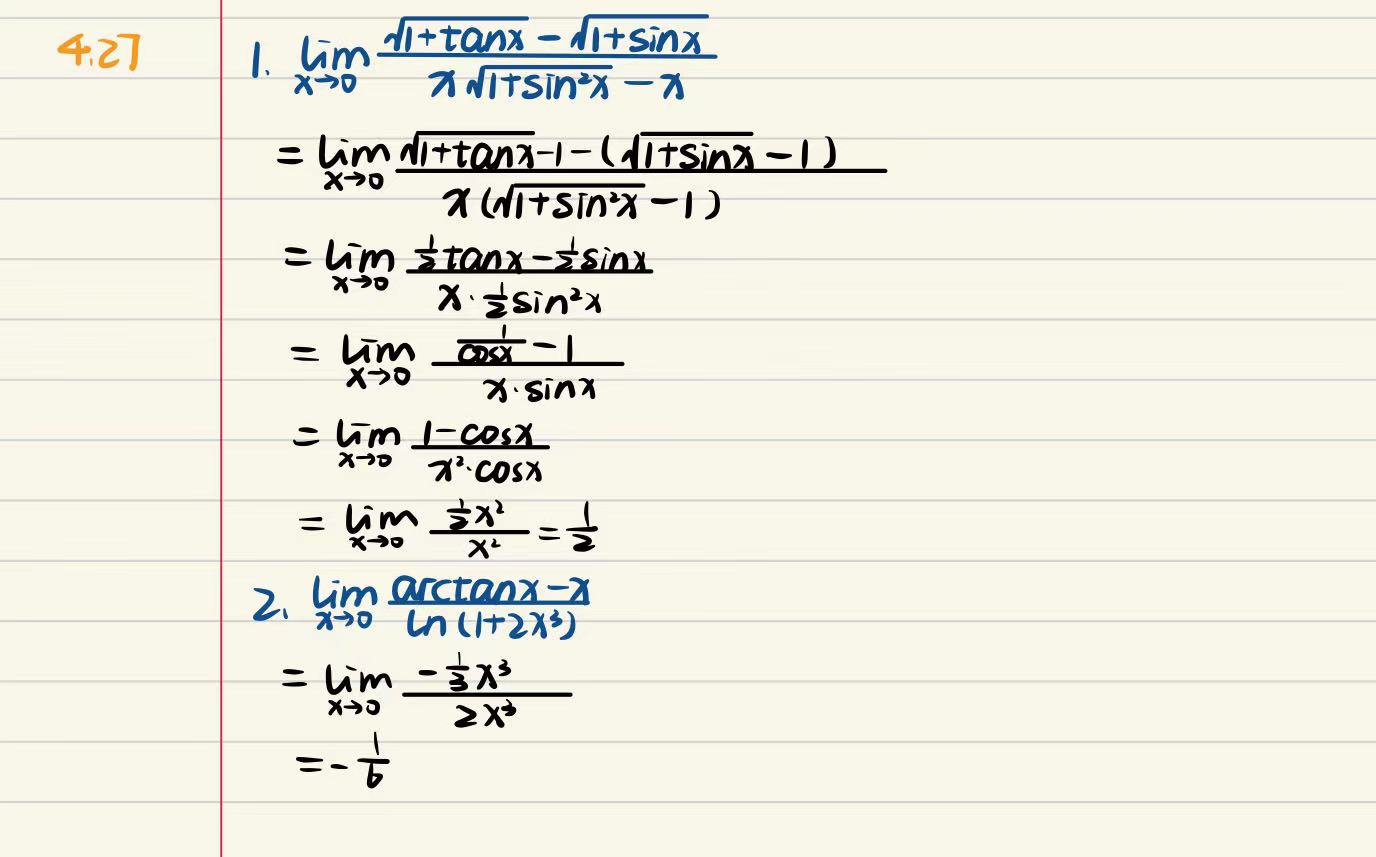 4.27
1. lim_{x→0} (√(1+tanx) − √(1+sinx)) / (x√(1+sin²x) − x)
= lim_{x→0} (√(1+tanx) −1 − (√(1+sinx) −1)) / (x(√(1+sin²x) −1))
= lim_{x→0} (½tanx − ½sinx) / (x·½sin²x)
= lim_{x→0} (1/cosx − 1) / (x·sinx)
= lim_{x→0} (1−cosx) / (x²·cosx)
= lim_{x→0} (½x²) / x² = ½
2. lim_{x→0} (arctanx − x) / ln(1+2x³)
= lim_{x→0} (−⅓x³) / (2x³)
= −1/6